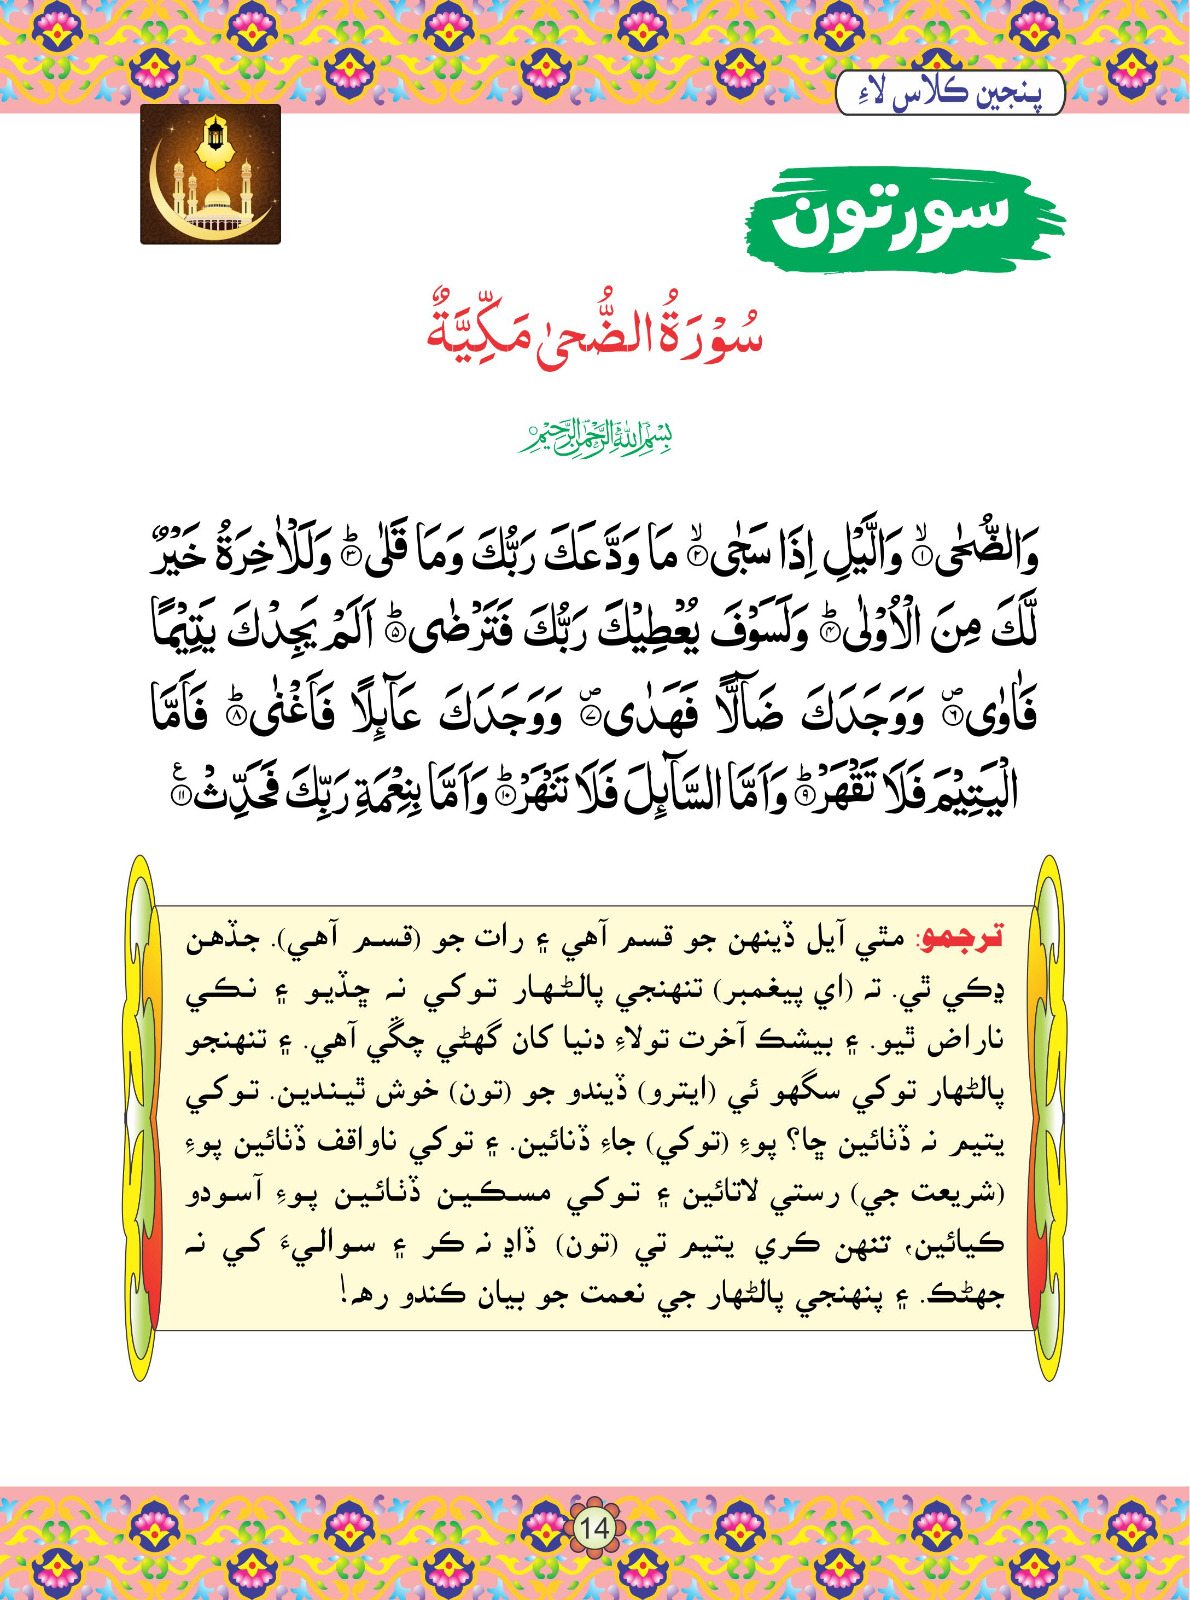 پنجين ڪلاس لاءِ
سورتون
سُوْرَةُ الضُّحىٰ مَكِّيَّةٌ
بِسْمِ اللهِ الرَّحْمٰنِ الرَّحِيْمِ
وَالضُّحٰى ۙ﴿۱﴾ وَالَّيْلِ اِذَا سَجٰى ۙ﴿۲﴾ مَا وَدَّعَكَ رَبُّكَ وَمَا قَلٰى ؕ﴿۳﴾ وَلَلْاٰخِرَةُ خَيْرٌ
لَّكَ مِنَ الْاُوْلٰى ؕ﴿۴﴾ وَلَسَوْفَ يُعْطِيْكَ رَبُّكَ فَتَرْضٰى ؕ﴿۵﴾ اَلَمْ يَجِدْكَ يَتِيْمًا
فَاٰوٰى ۪﴿۶﴾ وَوَجَدَكَ ضَآلًّا فَهَدٰى ۪﴿۷﴾ وَوَجَدَكَ عَآئِلًا فَاَغْنٰى ؕ﴿۸﴾ فَاَمَّا
الْيَتِيْمَ فَلَا تَقْهَرْ ؕ﴿۹﴾ وَاَمَّا السَّآئِلَ فَلَا تَنْهَرْ ؕ﴿۱۰﴾ وَاَمَّا بِنِعْمَةِ رَبِّكَ فَحَدِّثْ ﴿۱۱﴾ ع
ترجمو: مٿي آيل ڏينهن جو قسم آهي ۽ رات جو (قسم آهي). جڏهن
ڍڪي ٿي. تہ (اي پيغمبر) تنهنجي پالڻهار توکي نہ ڇڏيو ۽ نڪي
ناراض ٿيو. ۽ بيشڪ آخرت تولاءِ دنيا کان گهڻي چڱي آهي. ۽ تنهنجو
پالڻهار توکي سگهو ئي (ايترو) ڏيندو جو (تون) خوش ٿيندين. توکي
يتيم نہ ڏٺائين ڇا؟ پوءِ (توکي) جاءِ ڏنائين. ۽ توکي ناواقف ڏٺائين پوءِ
(شريعت جي) رستي لاتائين ۽ توکي مسڪين ڏٺائين پوءِ آسودو
ڪيائين، تنهن ڪري يتيم تي (تون) ڏاڍ نہ ڪر ۽ سواليءَ کي نہ
جهڻڪ. ۽ پنهنجي پالڻهار جي نعمت جو بيان ڪندو رهہ!
14